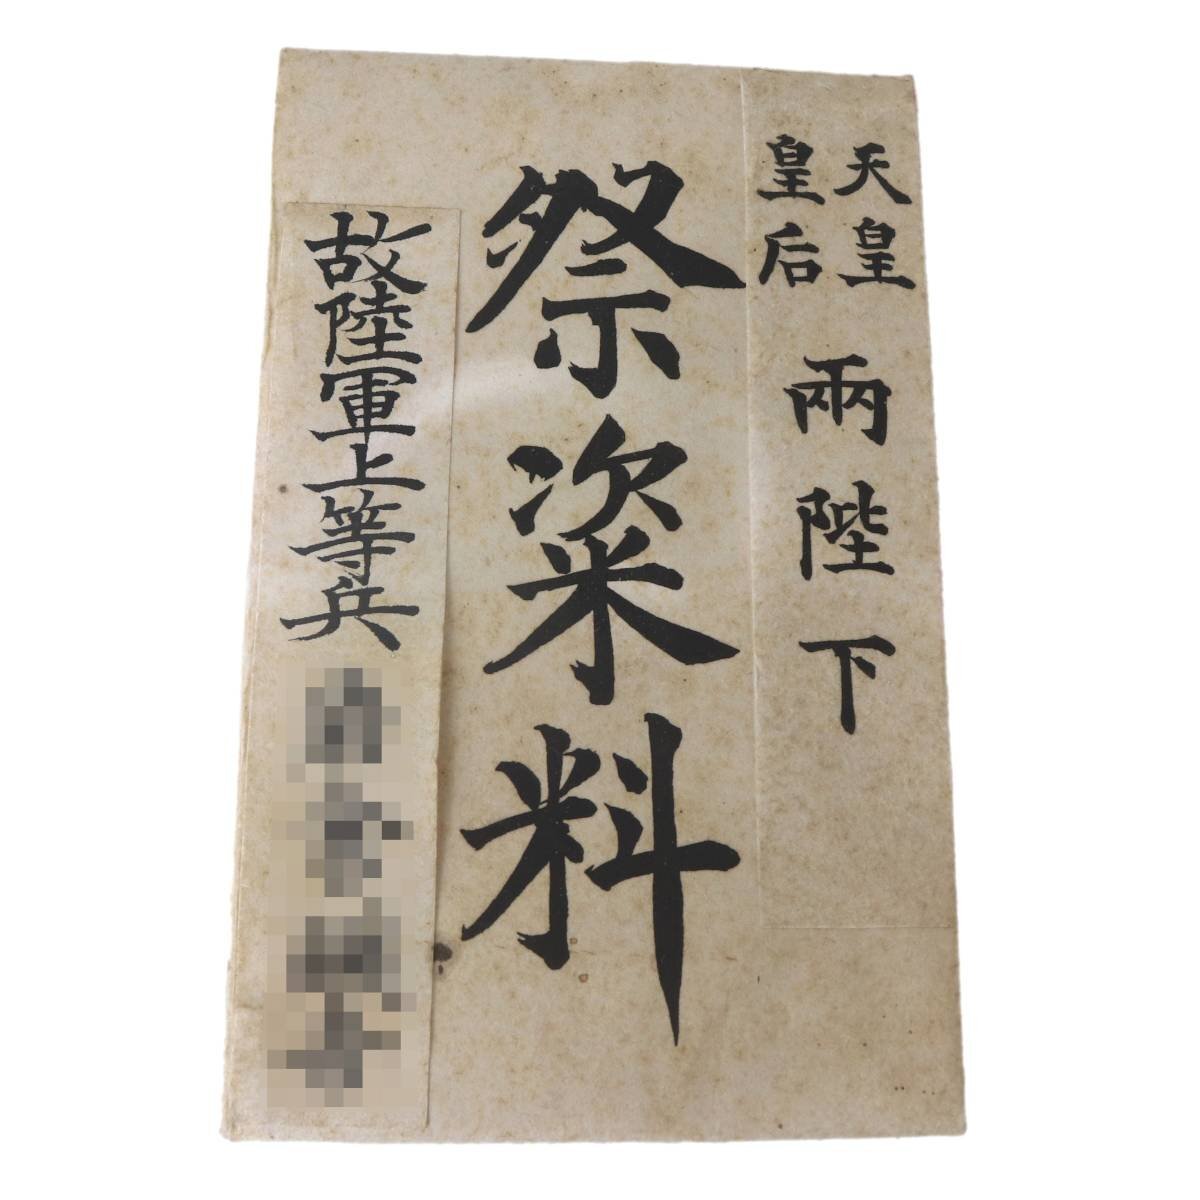 天皇
皇后
兩陛下
祭粢料
故陸軍上等兵